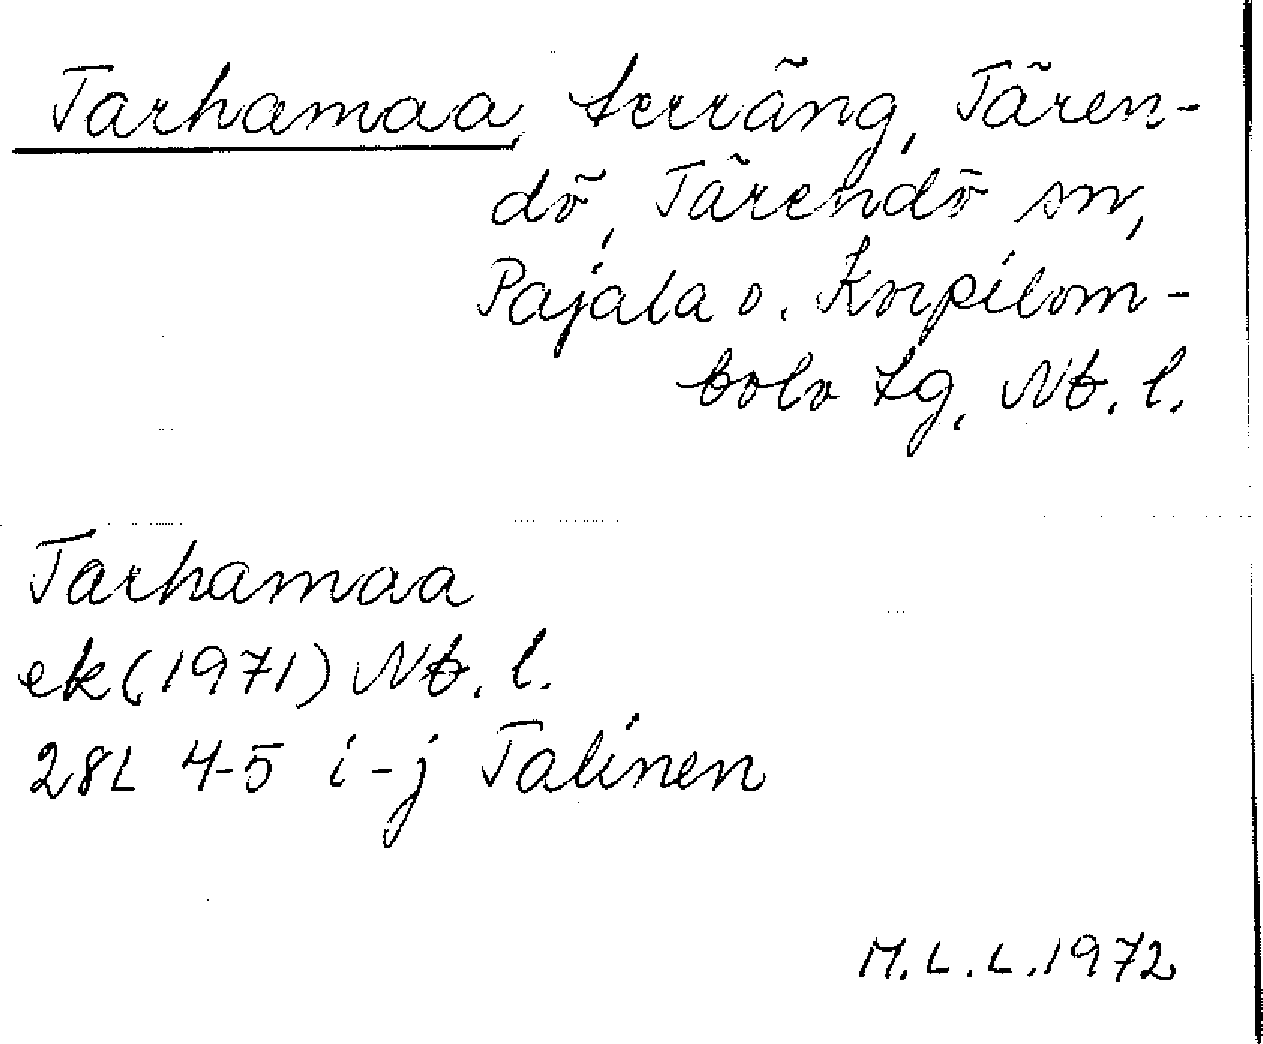 Tarhamaa, terräng, Tären-
dö, Tärendö sn,
Pajala o. Korpilom-
bolo tg, Nb. l.
Tarhamaa
ek (1971) Nb. l.
28L 4-5 i-j Talinen
M.L.L. 1972